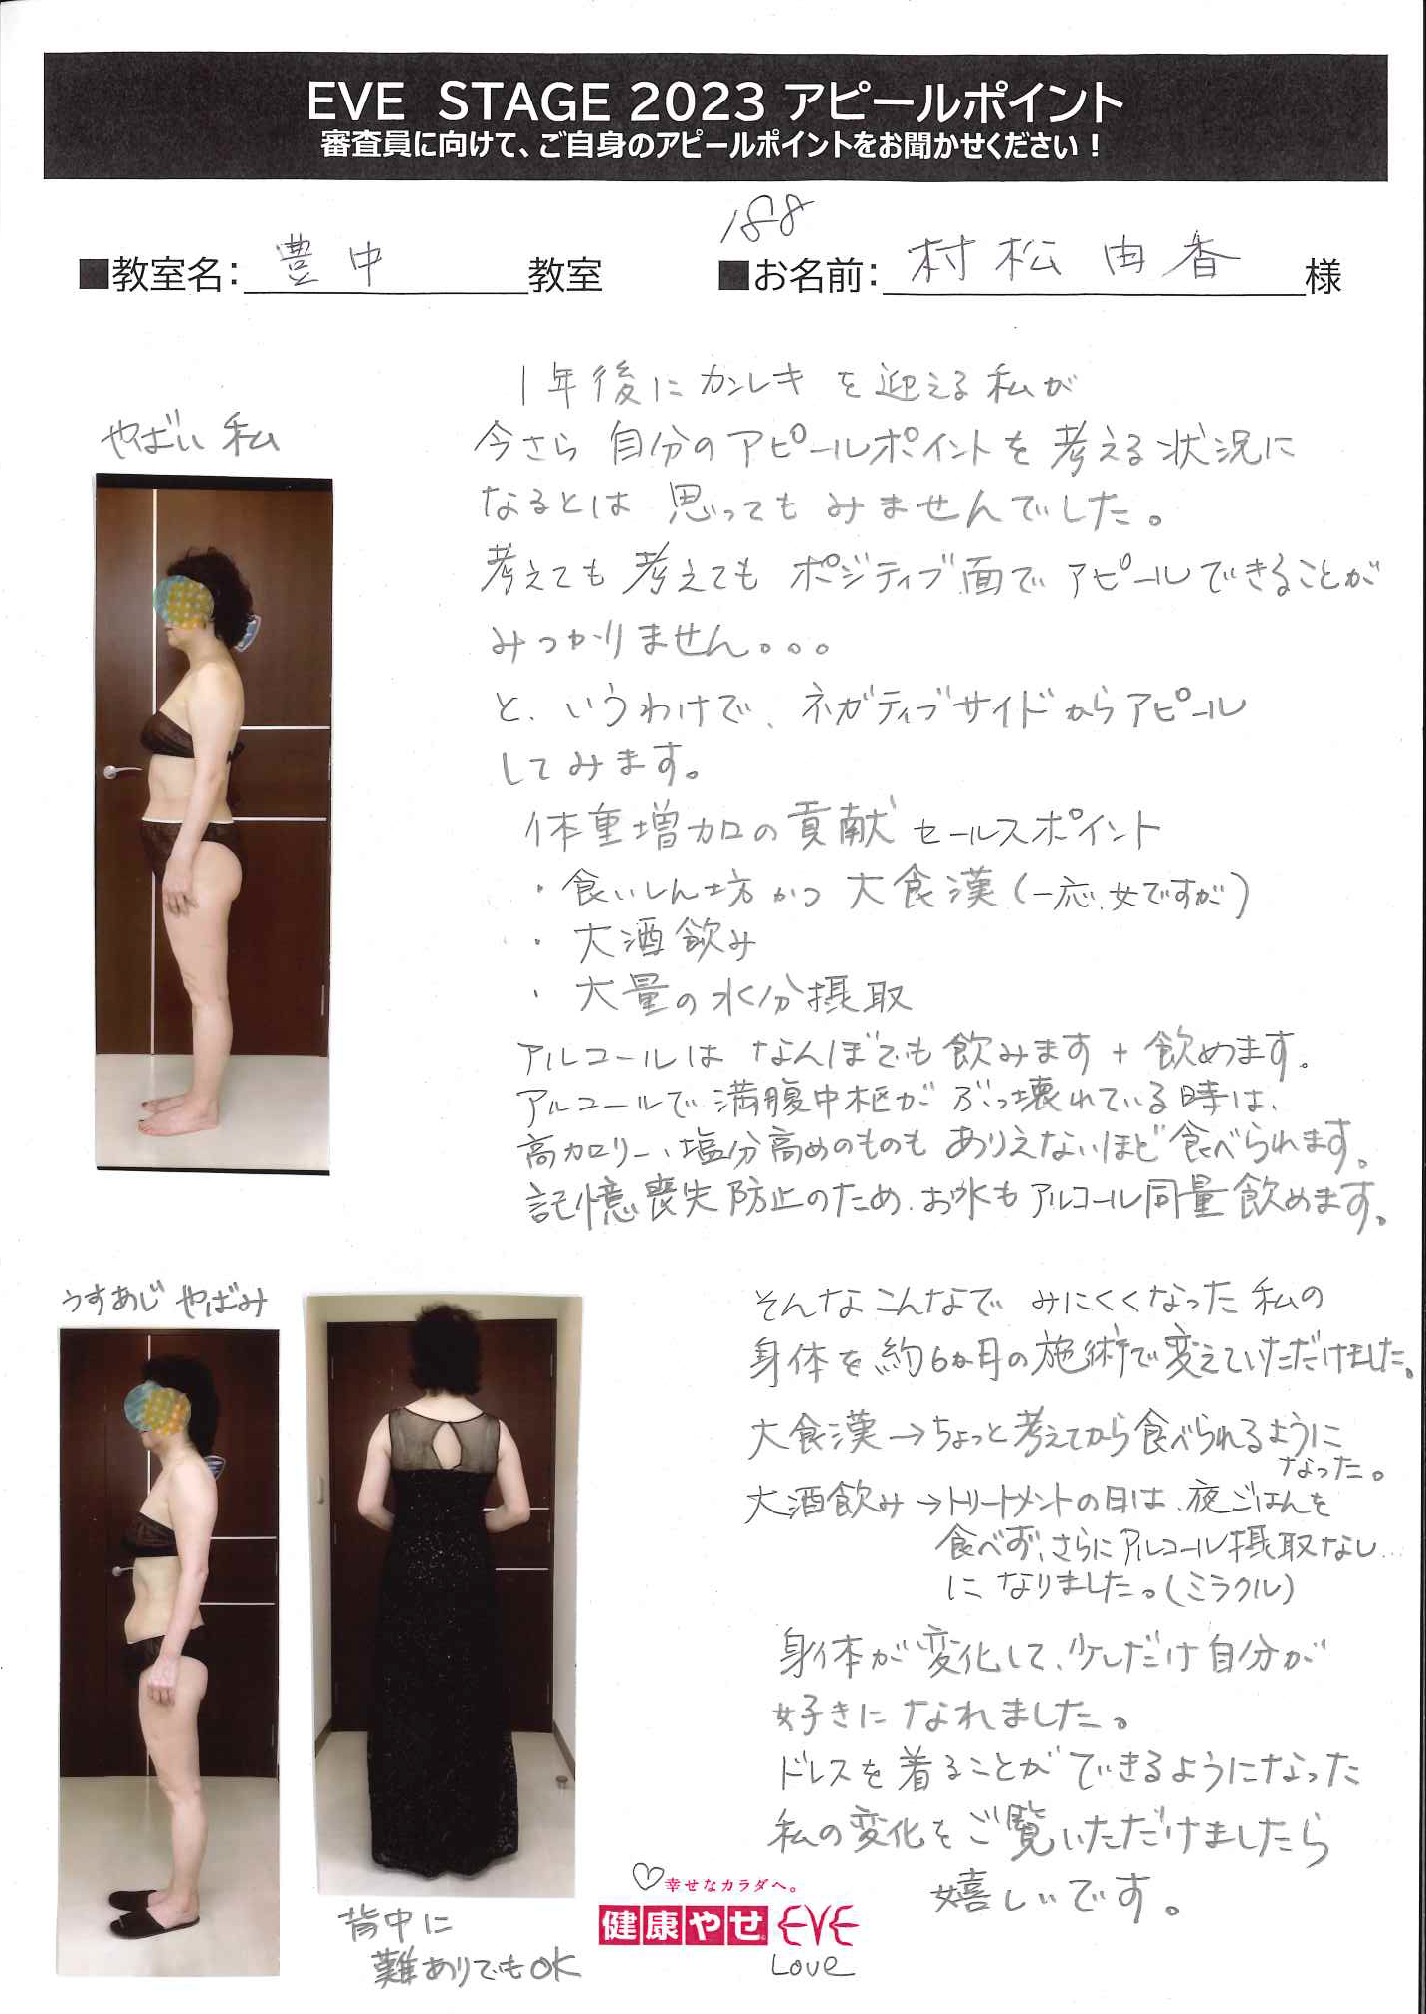 EVE STAGE 2023 アピールポイント
審査員に向けて、ご自身のアピールポイントをお聞かせください！
188
■教室名：豊中教室
■お名前：村松由香様
1年後にカンレキを迎える私が
今さら自分のアピールポイントを考える状況に
なるとは思ってもみませんでした。
考えても考えてもポジティブ面でアピールできることが
みつかりません。。。
と、いうわけで、ネガティブサイドからアピール
してみます。
体重増加の貢献セールスポイント
・食いしん坊かつ大食漢（一応、女ですが）
・大酒飲み
・大量の水分摂取
アルコールはなんぼでも飲みます＋飲めます。
アルコールで満腹中枢がぶっ壊れている時は、
高カロリー、塩分高めのものもありえないほど食べられます。
記憶喪失防止のため、お水もアルコール同量飲めます。
やばい私
うすあじやばみ
そんなこんなでみにくくなった私の
身体を約6ヵ月の施術で変えていただけました。
大食漢→ちょっと考えてから食べられるように
なった。
大酒飲み→トリートメントの日は、夜ごはんを
食べず、さらにアルコール摂取なし…
になりました。（ミラクル）
身体が変化して、少しだけ自分が
好きになれました。
ドレスを着ることができるようになった
私の変化をご覧いただけましたら
嬉しいです。
背中に
難ありでもOK
幸せなカラダへ。
健康やせ EVE
Love